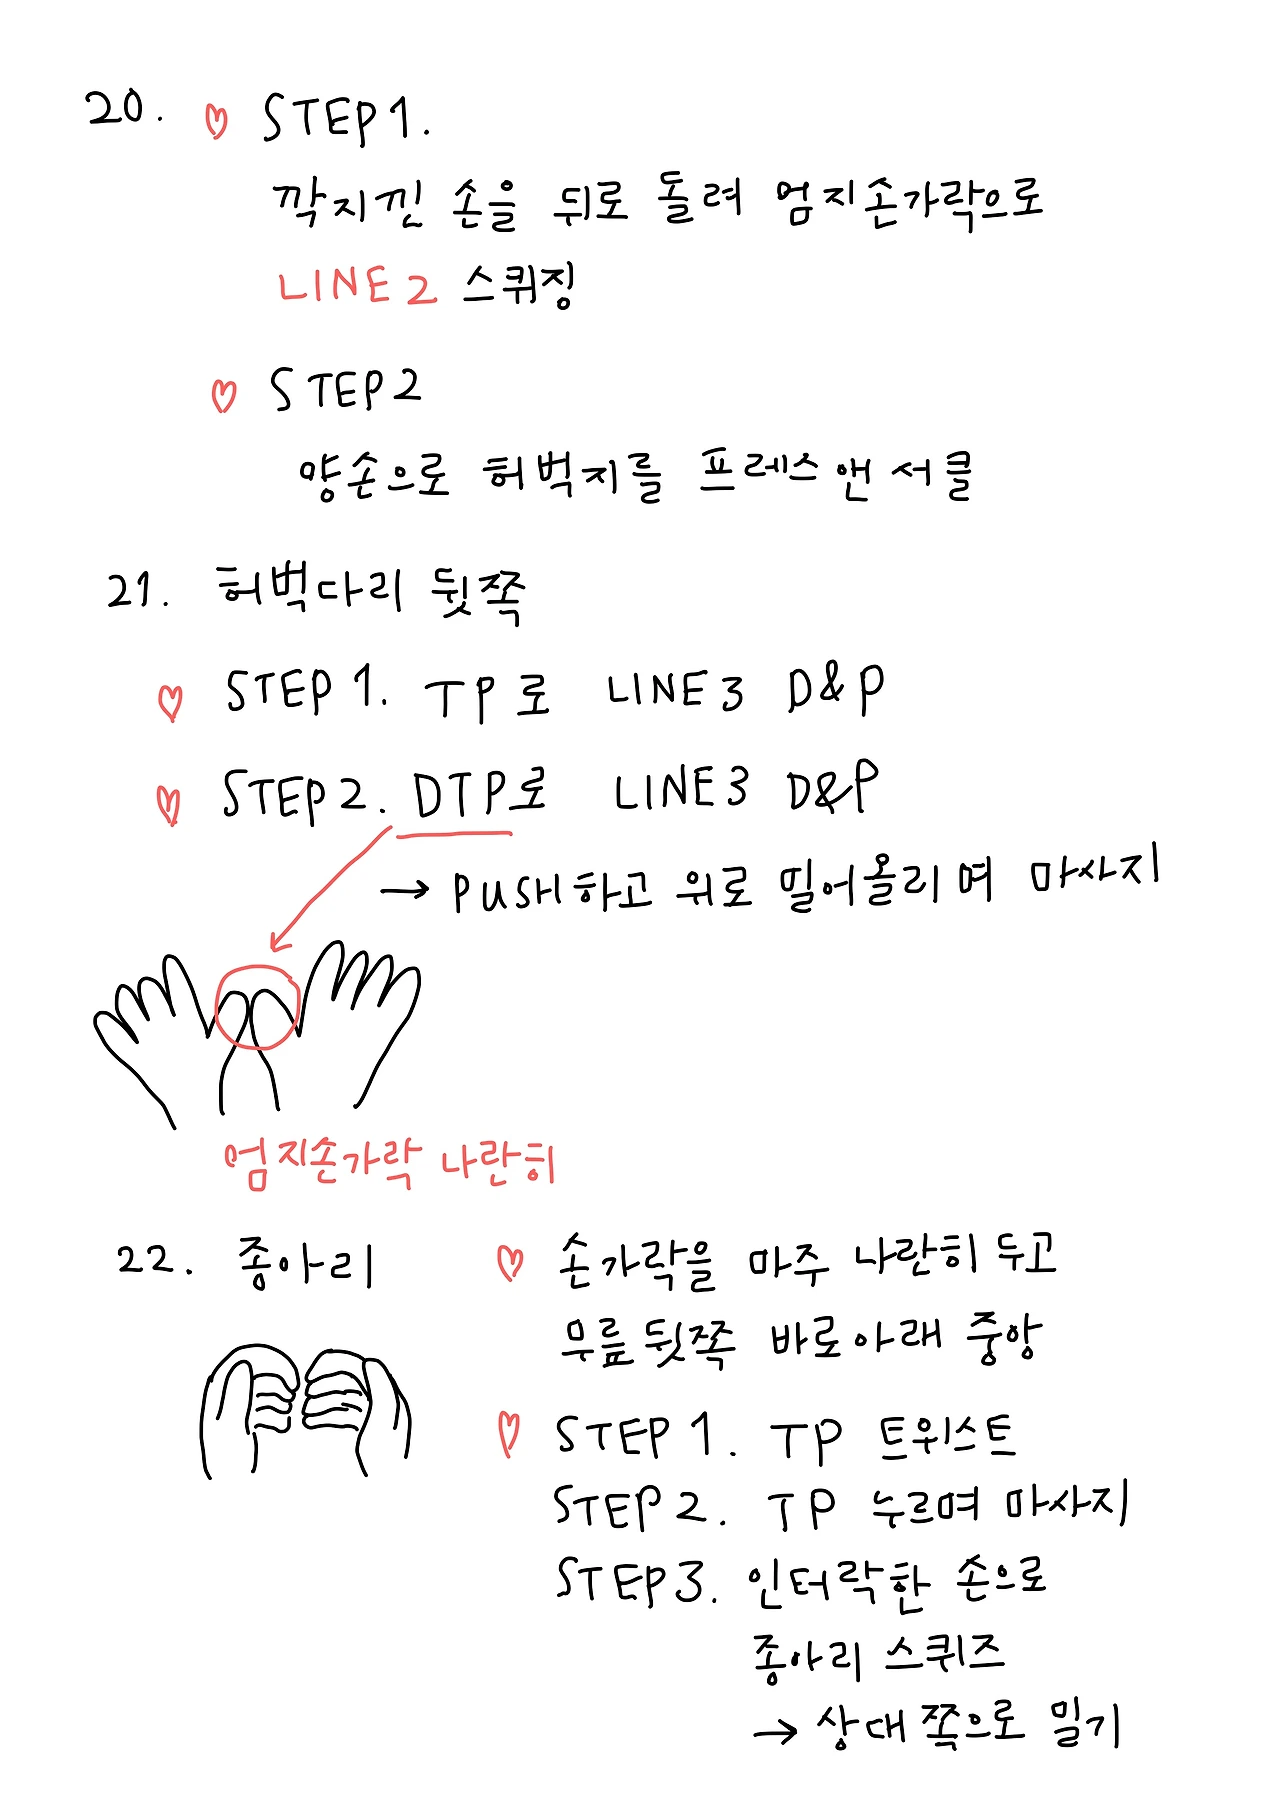 20. ♡ STEP 1.
깍지낀 손을 뒤로 돌려 엄지손가락으로
LINE 2 스퀴징
♡ STEP2
양손으로 허벅지를 프레스 앤 서클
21. 허벅다리 뒷쪽
♡ STEP 1. TP로 LINE 3 D&P
♡ STEP 2. DTP로 LINE 3 D&P
→ PUSH하고 위로 밀어올리며 마사지
엄지손가락 나란히
22. 종아리
♡ 손가락을 마주 나란히 두고
무릎 뒷쪽 바로아래 중앙
♡ STEP 1. TP 트위스트
STEP 2. TP 누르며 마사지
STEP 3. 인터락한 손으로
종아리 스퀴즈
→ 상대쪽으로 밀기